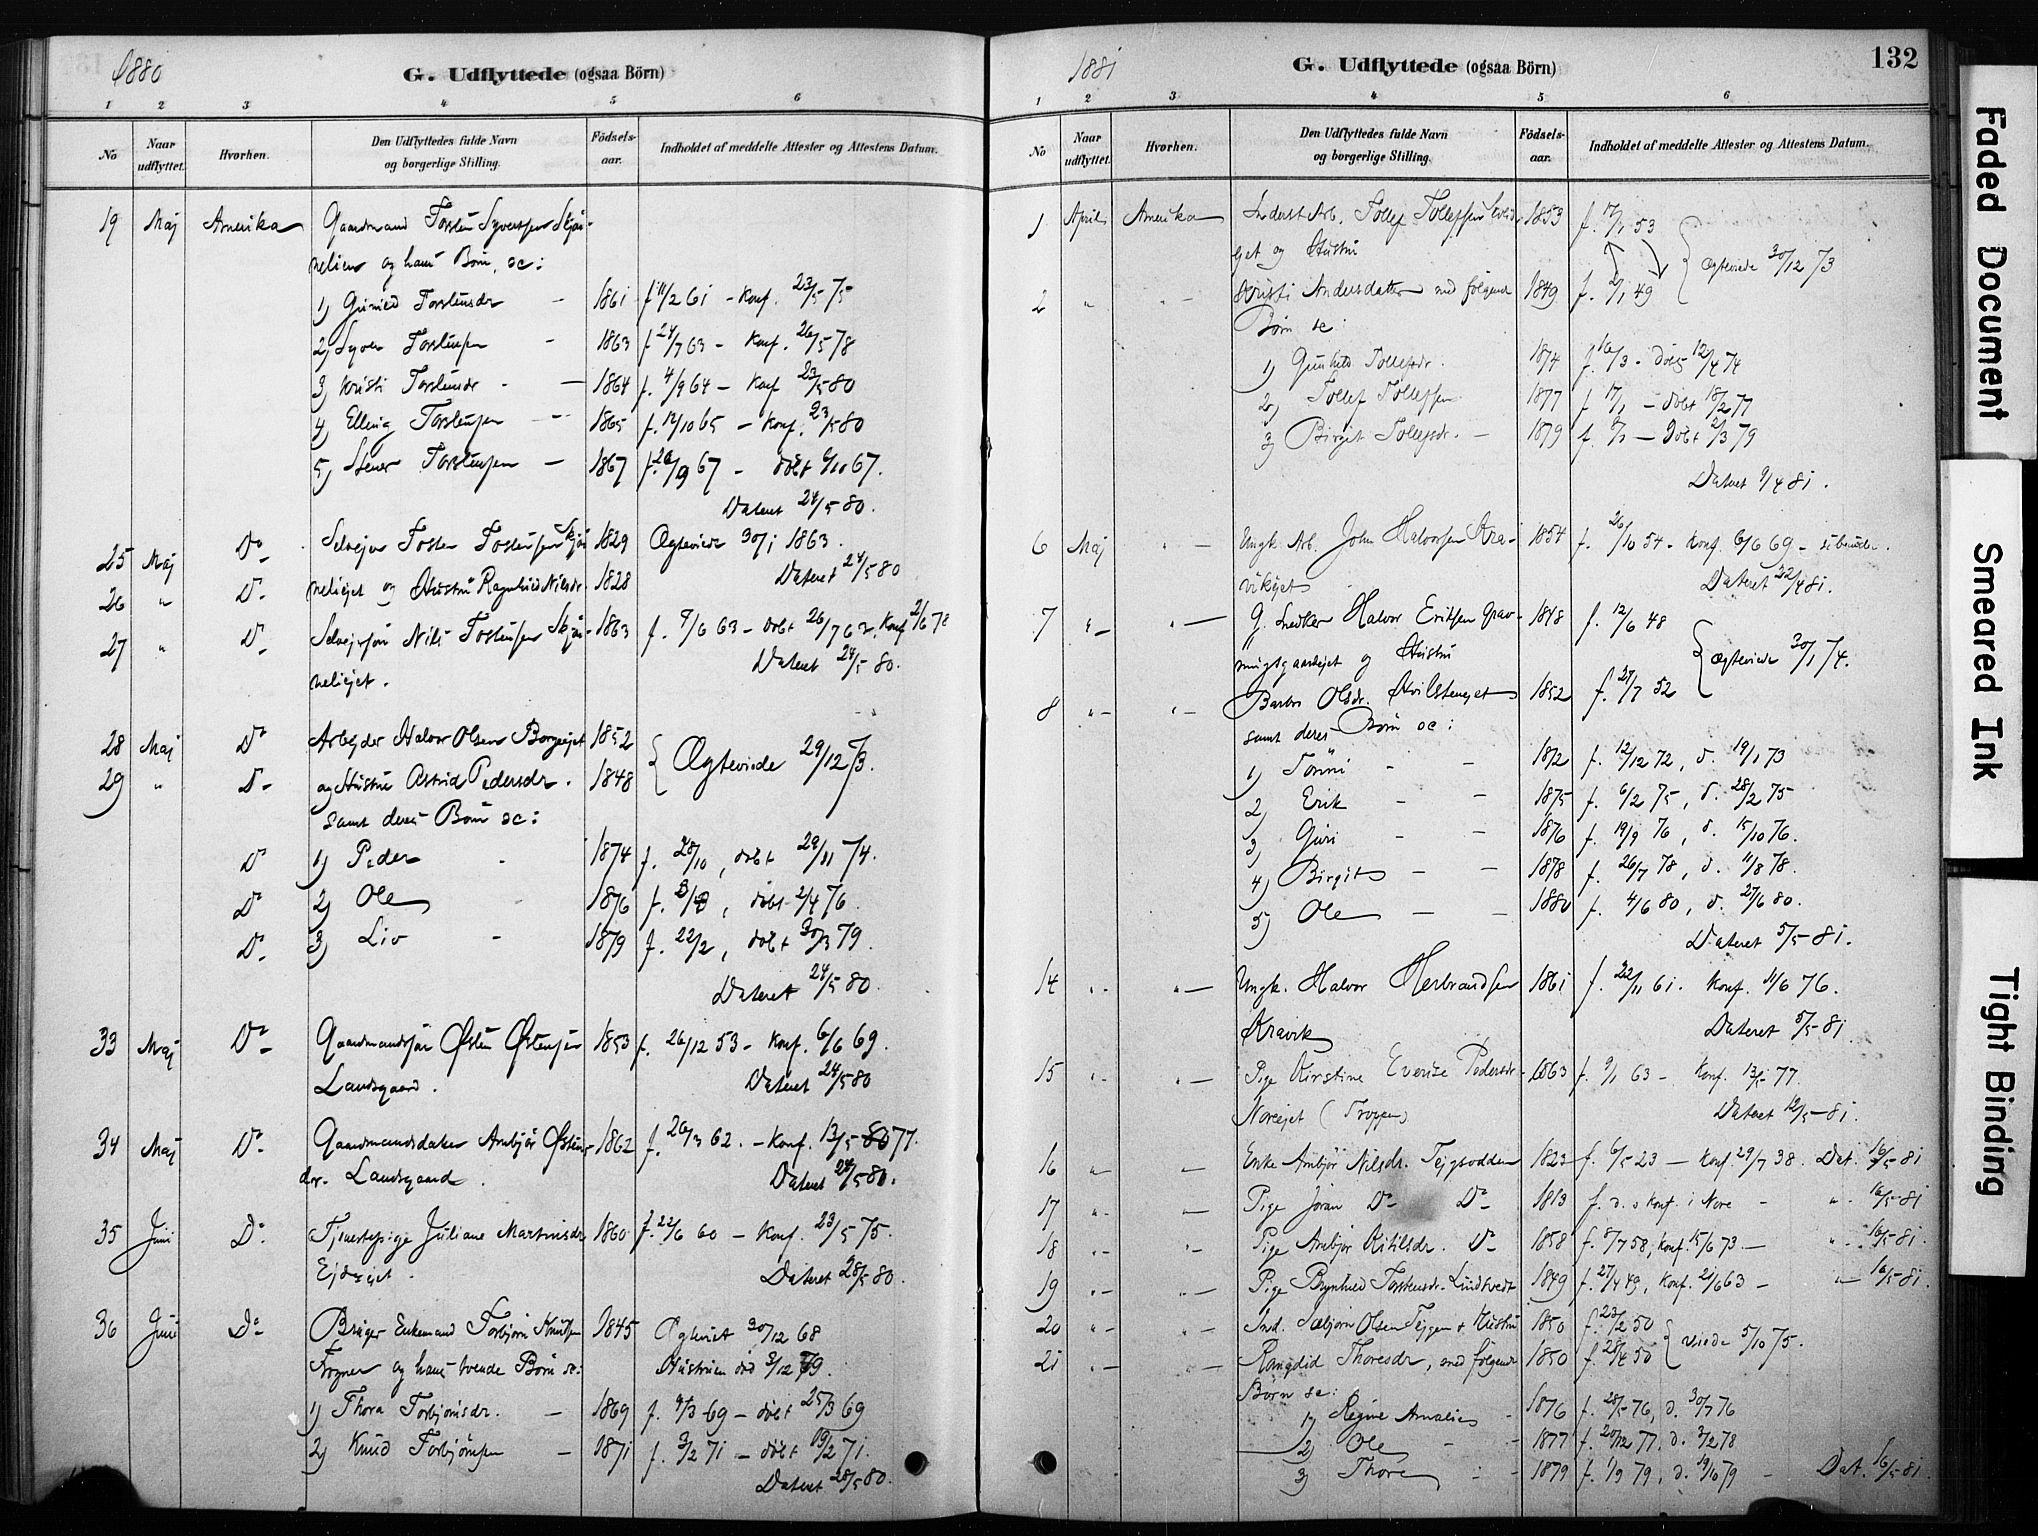 1880
G. Udflyttede (ogsaa Börn)
1 2 3 4 5 6
No
Naar udflyttet.
Hvorhen.
Den Udflyttedes fulde Navn og borgerlige Stilling.
Födsels-aar.
Indholdet af meddelte Attester og Attestens Datum.
19 Maj Amerika Gaardmand Torsten Syvertsen Skjön-
nelien og hans Børn, sc:
1) Gunild Torstensdr — 1861 f 11/2 61 - Konf. 23/5 75
2) Syver Torstensen — 1863 f 24/7 63 - Konf. 26/5 78
3) Kristi Torstensdr - — 1864 f. 4/9 64 - Konf 23/5 80
4) Elling Torstensen — 1865 f. 12/10 65 - Konf. 23/5 80
5) Stener Torstensen — 1867 f. 26/9 67 - döbt 6/10 67.
Dateret 24/5 80.
25 Maj Do Selvejer Tosten Tostensen Skjön 1829 Ægteviede 30/1 1863.
26 " Do neliejet og Hustru Ragnhild Nilsdr 1828 Dateret 24/5 80
27 " Do Selvejersøn Nils Tostensen Skjön- 1863 f. 9/6 63 - döbt 26/7 63. Konf 2/6 78
neliejet. Dateret 24/5 80.
28 Maj Do Arbejder Halvor Olsen Borgeejet 1852 Ægteviede 29/12 73.
29 " D- og Hustru Astrid Pedersdr. 1848
samt deres Børn sc:
Do 1) Peder - 1874 f. 28/10, döbt 29/11 74.
Do 2) Ole - 1876 f. 3/3, döbt 2/4 76
Do 3) Liv - 1879 f. 22/2, döbt 30/3 79.
Dateret 24/5 80.
33 Maj Do Gaardmandssøn Østen Østensen 1853 f. 26/12 53 - Konf. 6/6 69.
Landsgaard. Dateret 24/5 80
34 Maj Do Gaardmandsdatter Ambjör Østens- 1862 f. 26/3 62. - Konf. 13/5 77.
dr. Landsgaard. Dateret 24/5 80.
35 Juni Do Tjenestepige Juliane Martinsdr 1860 f. 22/6 60 - Konf. 23/5 75.
Dateret 28/5 80.
36 Juni Do Bruger Enkemand Torbjörn Knutsen 1845 Ægteviet 30/12 68
og hans tvende Børn sc: Hustruen död 3/12 79.
1) Thora Torbjörnsdr. — 1869 f. 9/3 69 - döbt 25/3 69
2) Knud Torbjörnsen — 1871 f. 3/2 71 - döbt 19/2 71.
Dateret 28/5 80.
1881
G. Udflyttede (ogsaa Börn)
132
1 2 3 4 5 6
No
Naar udflyttet.
Hvorhen.
Den Udflyttedes fulde Navn og borgerlige Stilling.
Födsels-aar.
Indholdet af meddelte Attester og Attestens Datum.
1 April Amerika Inderst Arb. Tollef Tollefsen 1853 f. 53
og Hustru Ægteviede 30/12 73
2 " - Kristi Andersdatter med følgende 1849 f. 2/1 49
Børn sc:
1) Gunhild Tollefsdr. 1874 f. 16/3 - döbt 12/4 74
2) Tollef Tollefsen 1877 f 17/1 - döbt 18/2 77
3) Birgit Tollefsdr. - 1879 f. - Döbt 2/3 79
Dateret 9/4 81.
6 Maj " — Ungk. Arb. John Halvorsen Kra- 1854 f. 26/10 54 - Konf. 6/6 69
vikejet Dateret 22/4 81.
7 " - " — G. Snedker Halvor Eriksen Grav- 1848 f. 12/6 48
ningsgaardejet og Hustru Ægteviede 30/1 74.
8 " - " - Barbro Olsdr. Hvilstenejet 1852 f. 27/7 52
samt deres Børn sc:
1) Tönni - - 1872 f. 12/12 72, d. 19/1 73
2) Erik - - 1875 f. 6/2 75, d. 28/2 75
3) Guri - - 1876 f. 19/9 76, d. 15/10 76.
4) Birgit - - 1878 f. 26/7 78, d. 11/8 78.
5) Ole - - 1880 f. 4/6 80, d. 27/6 80.
Dateret 5/5 81.
14 " - " — Ungk. Halvor Herbrandsen 1861 f. 22/11 61. Konf. 11/6 76.
Kravik Dateret 5/5 81.
15 " - " — Pige Kirstine Pedersdr- 1863 f. 9/1 63 - Konf. 13/5 77.
Noreejet (Troppen) Dateret 12/5 81.
16 " - — Enke Ambjör Nilsdr. Tejgsodden 1823 f. 6/5 23 - Konf. 29/7 38. Dat. 16/5 81
17 " - — Pige Joran Do Do 1813 f. d. o konf. i Nore - " 16/5 81
18 " - " - Pige Ambjör Kitilsdr. Do 1858 f. 5/7 58, konf. 15/6 73 — " 16/5 81.
19 " - " — Pige Brynhild Torstensdr. Lindtvedt 1849 f. 27/4 49, Konf. 21/6 63 — " 16/5 81.
20 " - " — Ind. Torbjörn Olsen Tejgen + Hustru 1850 f. 23/2 50 viede 5/10 75.
21 " - " — Rangdid Thoresdr, med følgende 1850 f. 28/4 50
Børn sc:
1) Regine Amalie - 1876 f. 28/5 76, d. 30/7 76
2) Ole - - 1877 f. 20/12 77, d. 3/2 78
3) Thore - - 1879 f. 1/9 79, d. 19/10 79 - Dat. 16/5 81
Faded Document
Smeared Ink
Tight Binding